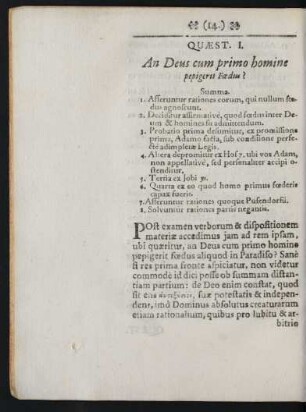 (14.)
QUÆST. I.
An Deus cum primo homine
pepigerit Fœdus?
Summa.
1. Afferuntur rationes eorum, qui nullum fœ-
dus agnoscunt.
2. Deciditur affirmativè, quod fœdus inter De-
um & homines sit admittendum.
3. Probatio prima desumitur, ex promissione
prima, Adamo facta, sub conditione perfe-
ctè adimpletæ Legis.
4. Altera depromitur ex Hos 7. ubi vox Adam,
non appellativè, sed personaliter accipi o-
stenditur.
5. Tertia ex Jobi 31.
6. Quarta ex eo quod homo primus fœderis
capax fuerit.
7. Afferuntur rationes quoque Pufendorfii.
8. Solvuntur rationes partis negantis.
POst examen verborum & dispositionem
materiæ accedimus jam ad rem ipsam,
ubi quæritur, an Deus cum primo homine
pepigerit fœdus aliquod in Paradiso? Sanè
si res prima fronte aspiciatur, non videtur
commodè id dici posse ob summam distan-
tiam partium: de Deo enim constat, quod
sit suæ potestatis & indepen-
dens, imò Dominus absolutus creaturarum
etiam rationalium, quibus pro lubitu & ar-
bitrio